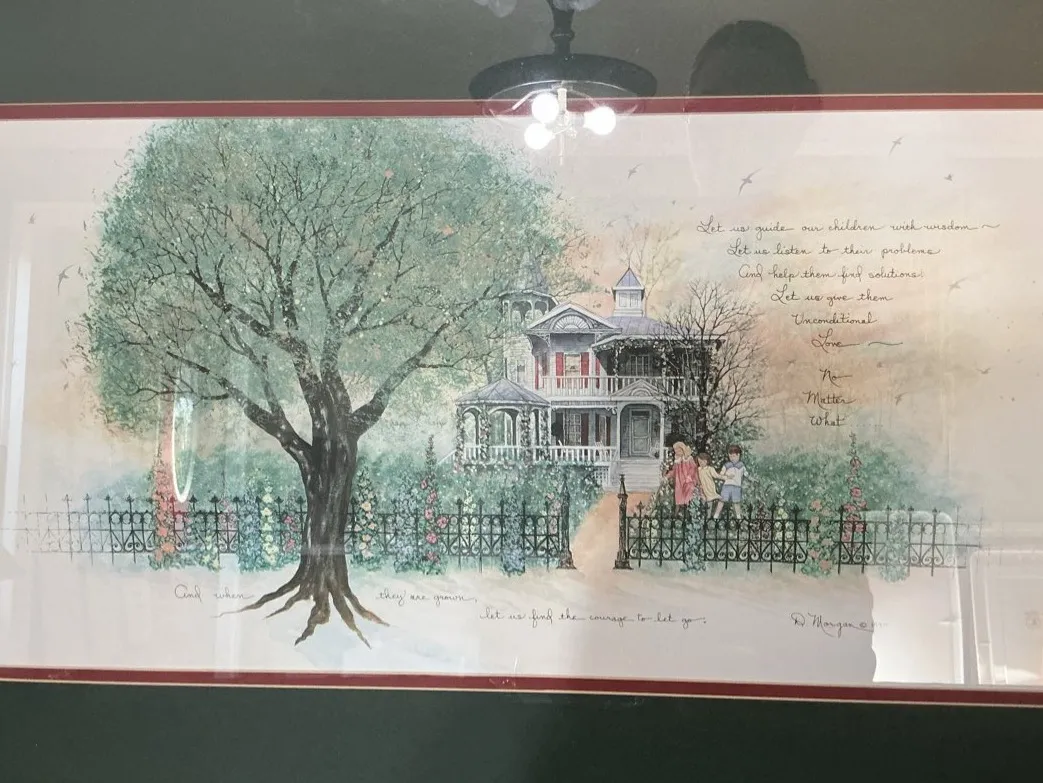 Let us guide our children with wisdom ~
Let us listen to their problems
And help them find solutions
Let us give them
Unconditional
Love ~
No
Matter
What
And when they're grown,
let us find the courage to let go.
D Morgan ©